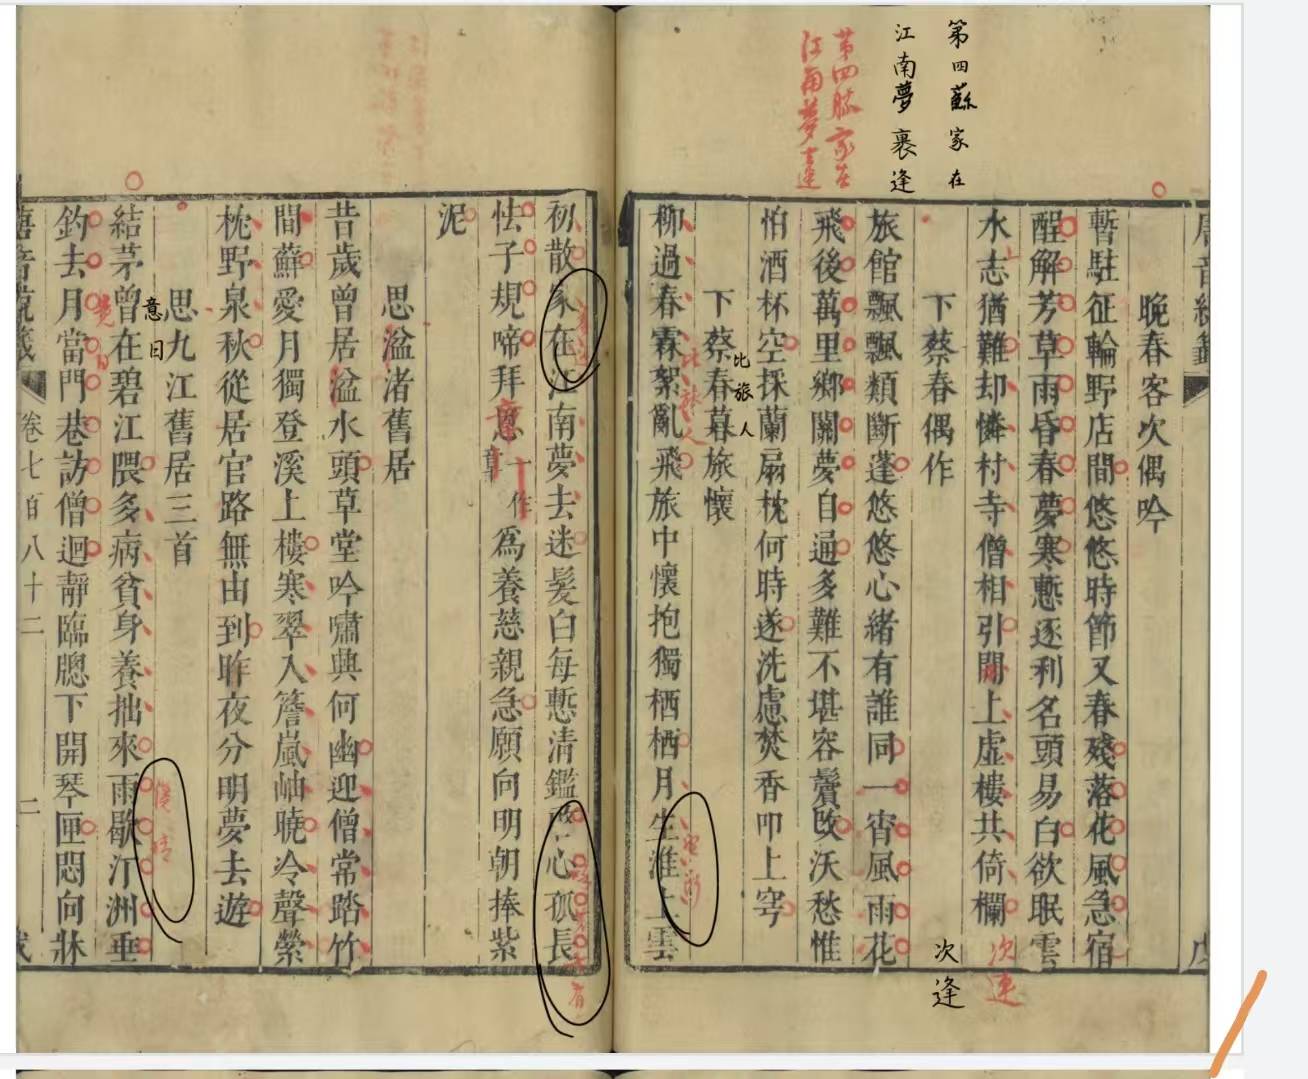 第四蘇家在
江南夢裹逢
晚春客次偶吟
暫駐征輪野店間悠悠時節又春殘落花風急宿
醒解芳草雨昏春夢寒慙逐利名頭易白欲眠雲
水志猶難却憐村寺僧相引閒上虛樓共倚欄
次逢
下蔡春偶作
旅館飄飄類斷蓬悠悠心緒有誰同一宵風雨花
飛後萬里鄉關夢自通多難不堪容鬢改沃愁惟
怕酒杯空採蘭扇枕何時遂洗慮焚香叩上穹
下蔡春暮旅懷
比旅人
柳過春霖絮亂飛旅中懷抱獨栖栖月生淮上雲
初散家在江南夢去迷髮白每慙清鑑啟心孤長
怯子規啼拜恩一作章爲養慈親急願向明朝捧紫
泥
思湓渚舊居
昔歲曾居湓水頭草堂吟嘯興何幽迎僧常踏竹
間蘚愛月獨登溪上樓寒翠入簷嵐岫曉冷聲縈
枕野泉秋從居官路無由到昨夜分明夢去遊
思九江舊居三首
意日
結茅曾在碧江隈多病貧身養拙來雨歇汀洲垂
釣去月當門巷訪僧迴靜臨牎下開琴匣悶向牀
卷七百八十二
二